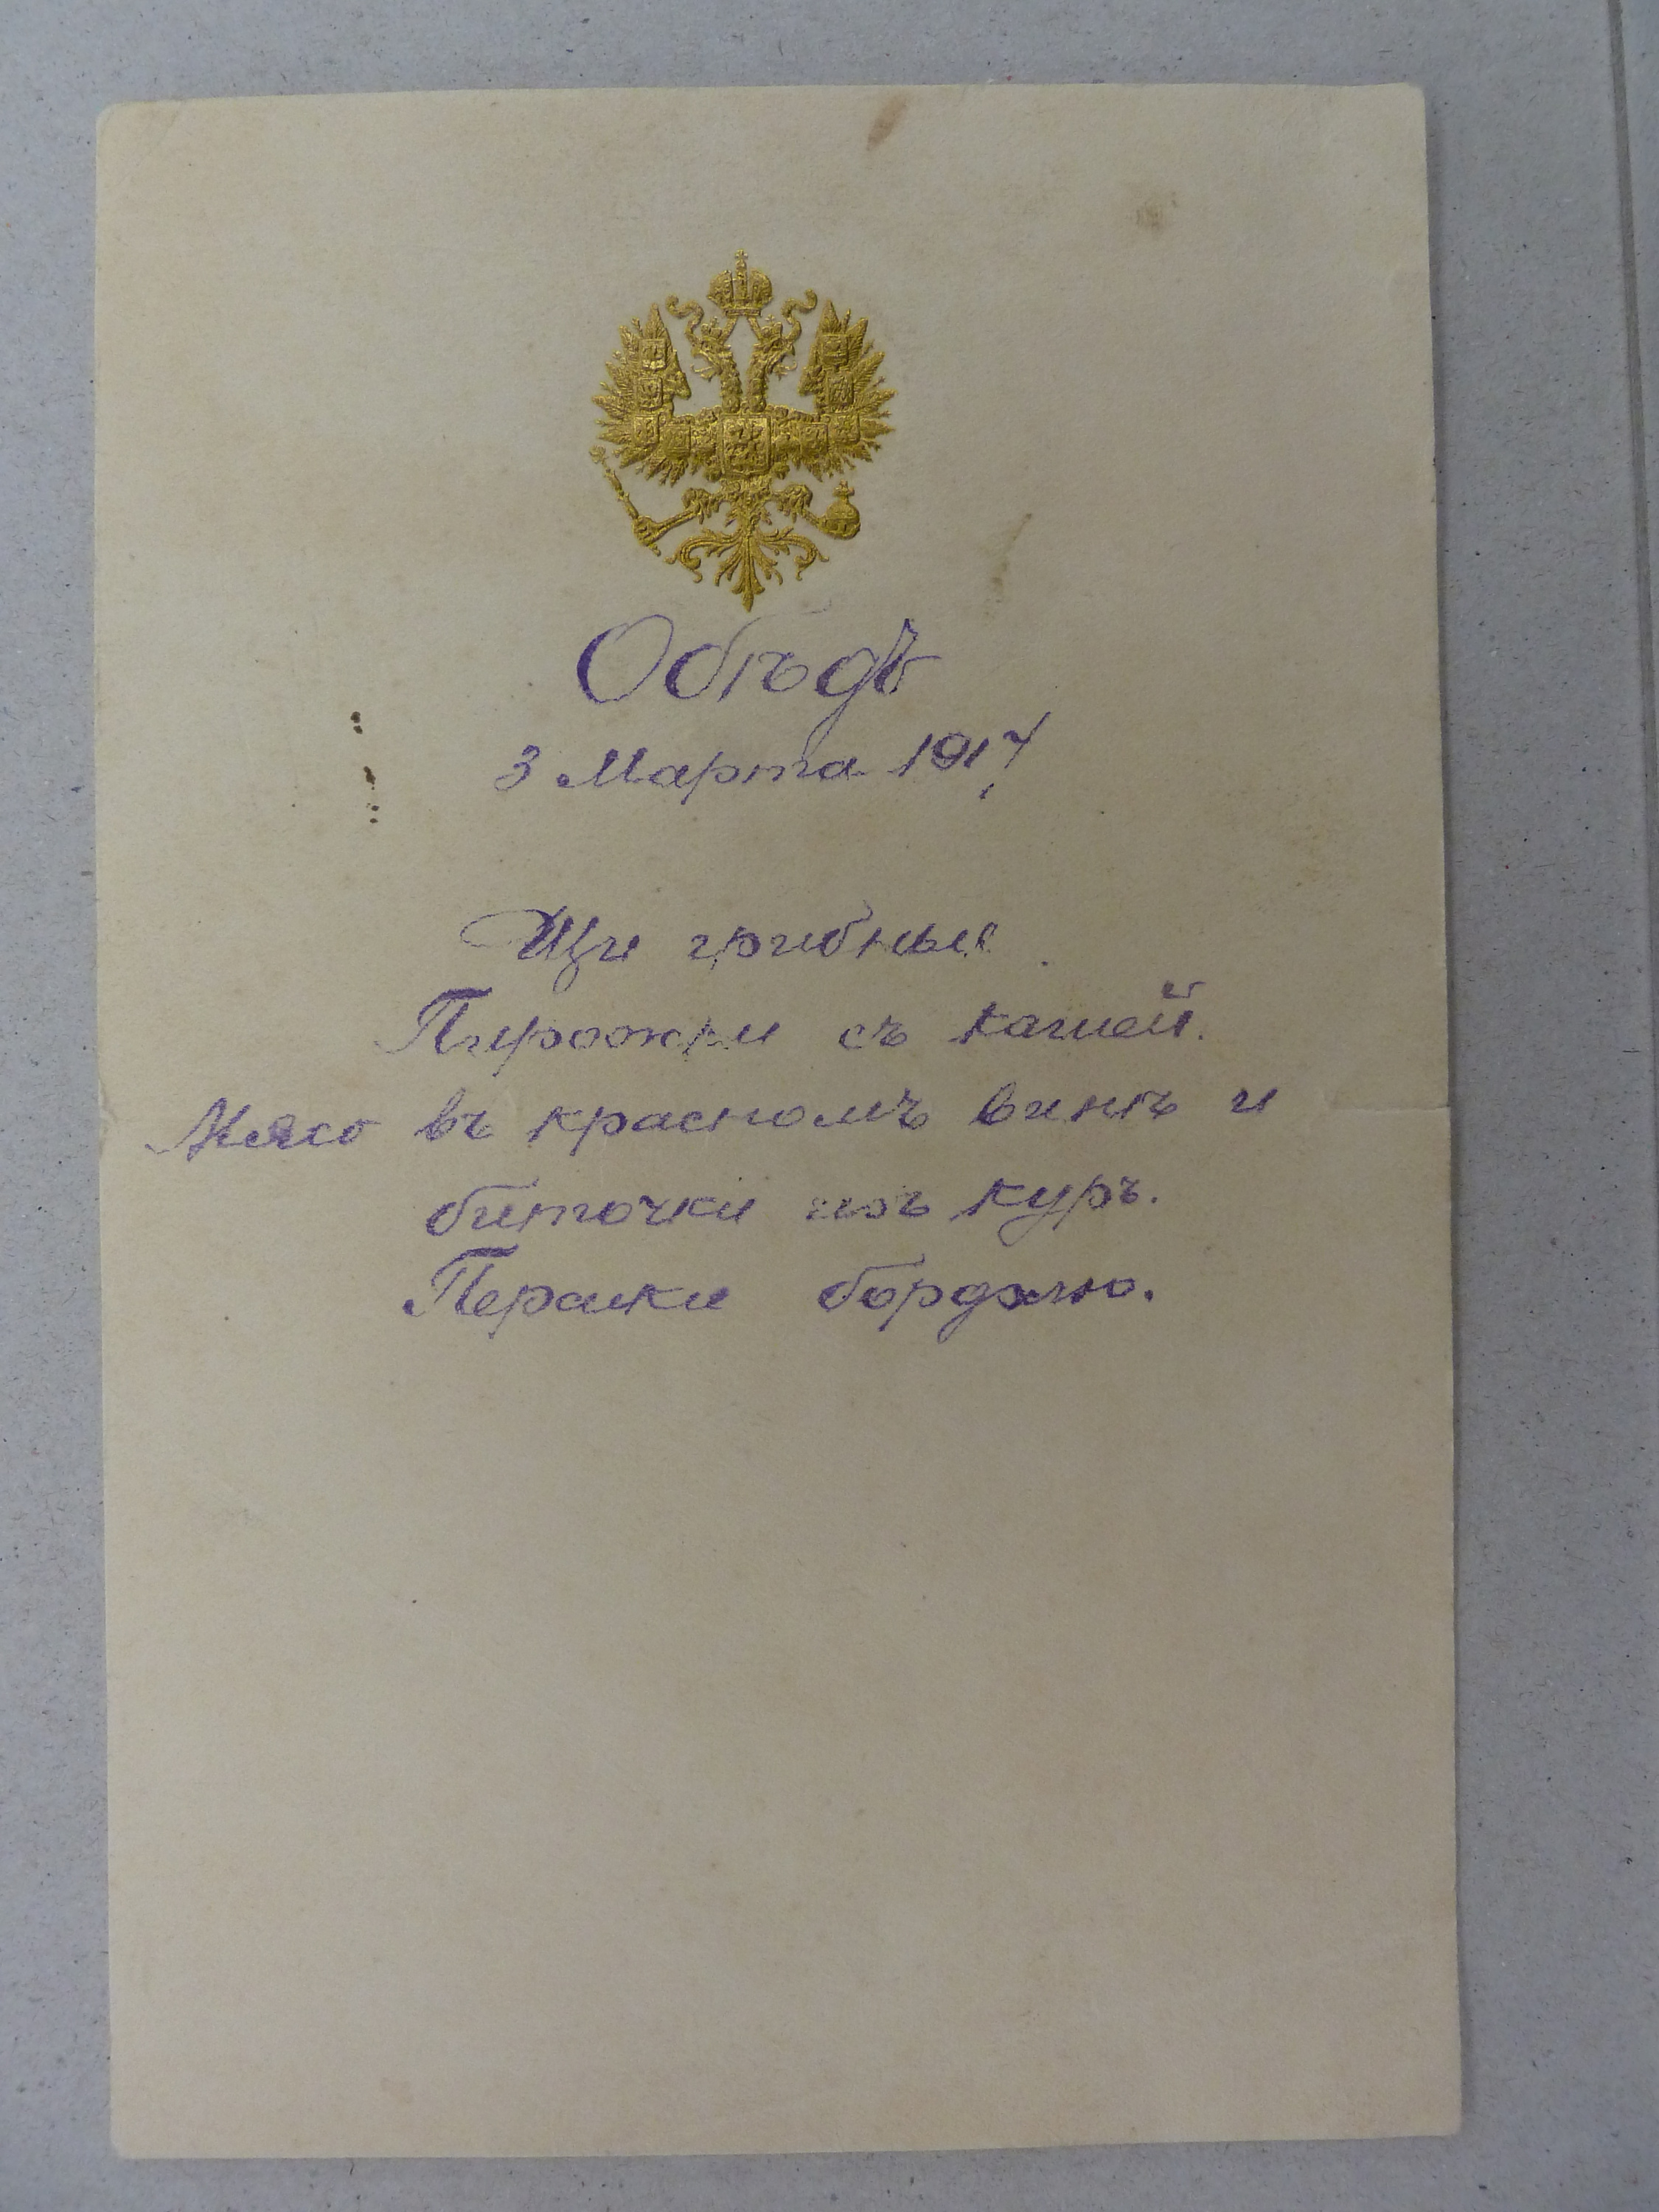 Обѣдъ
3 Марта 1917
Щи грибные
Пирожки съ кашей.
Мясо въ красномъ винѣ и
биточки изъ куръ.
Персики бордалю.